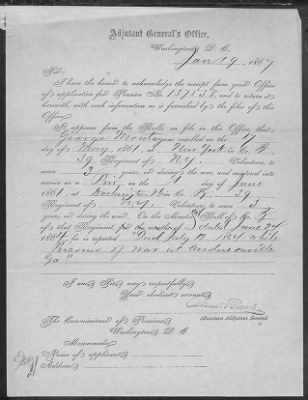 Adjutant General's Office,
Washington, D. C.
Jan 19, 1867
Sir:
I have the honor to acknowledge the receipt from your Office
of application for Pension No. and to return it
herewith, with such information as is furnished by the files of this
Office.
It appears from the Rolls on file in this Office, that
George was enrolled on the
day of May, 1861, at New York in Co.
39 Regiment of N.Y. Volunteers, to
serve 3 years, or during the war, and mustered into
service as a on the day of June
1861, at Washington in Co. 39
Regiment of N.Y. Volunteers, to serve 3
years, or during the war. On the Muster Roll of Co.
of that Regiment, for the months of dated June 24
1864 he is reported "Died July 12 1864 while
Prisoner of War at Andersonville
Ga"
I am Sir, very respectfully,
Your obedient servant,
Assistant Adjutant General.
The Commissioner of Pensions
Washington, D. C.
Memoranda:
Name of applicant,
Address,